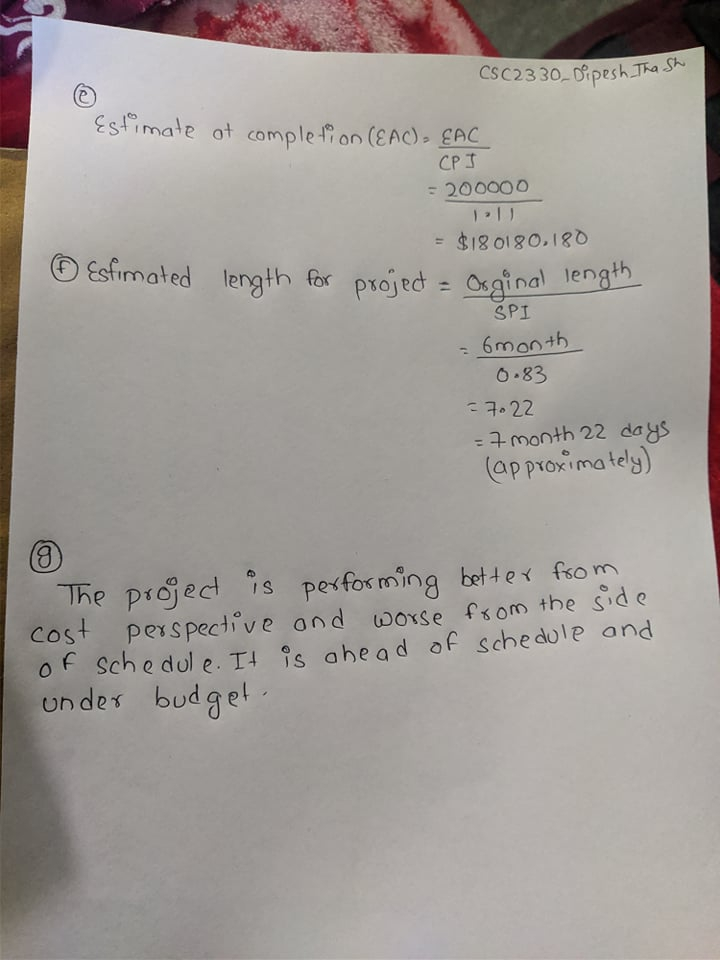 CSC2330_Dipesh_Jha Sh
e
Estimate at completion (EAC) = EAC
CPI
= 200000
1.11
= $180180.180
f Estimated length for project = Orginal length
SPI
= 6month
0.83
= 7.22
= 7 month 22 days
(approximately)
g
The project is performing better from
cost perspective and worse from the side
of schedule. It is ahead of schedule and
under budget.